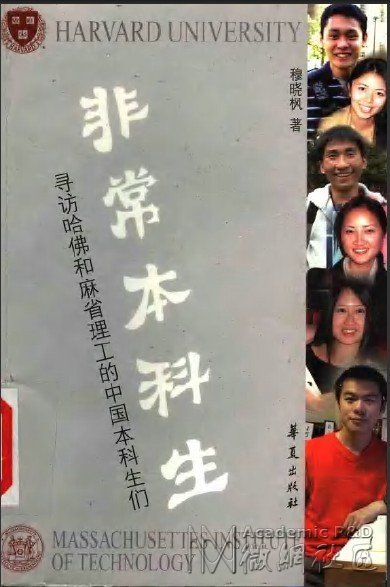 HARVARD UNIVERSITY
穆晓枫 著
非常本科生
寻访哈佛和麻省理工的中国本科生们
华夏出版社
MASSACHUSETTS INSTITUTE
OF TECHNOLOGY
Academic R&D